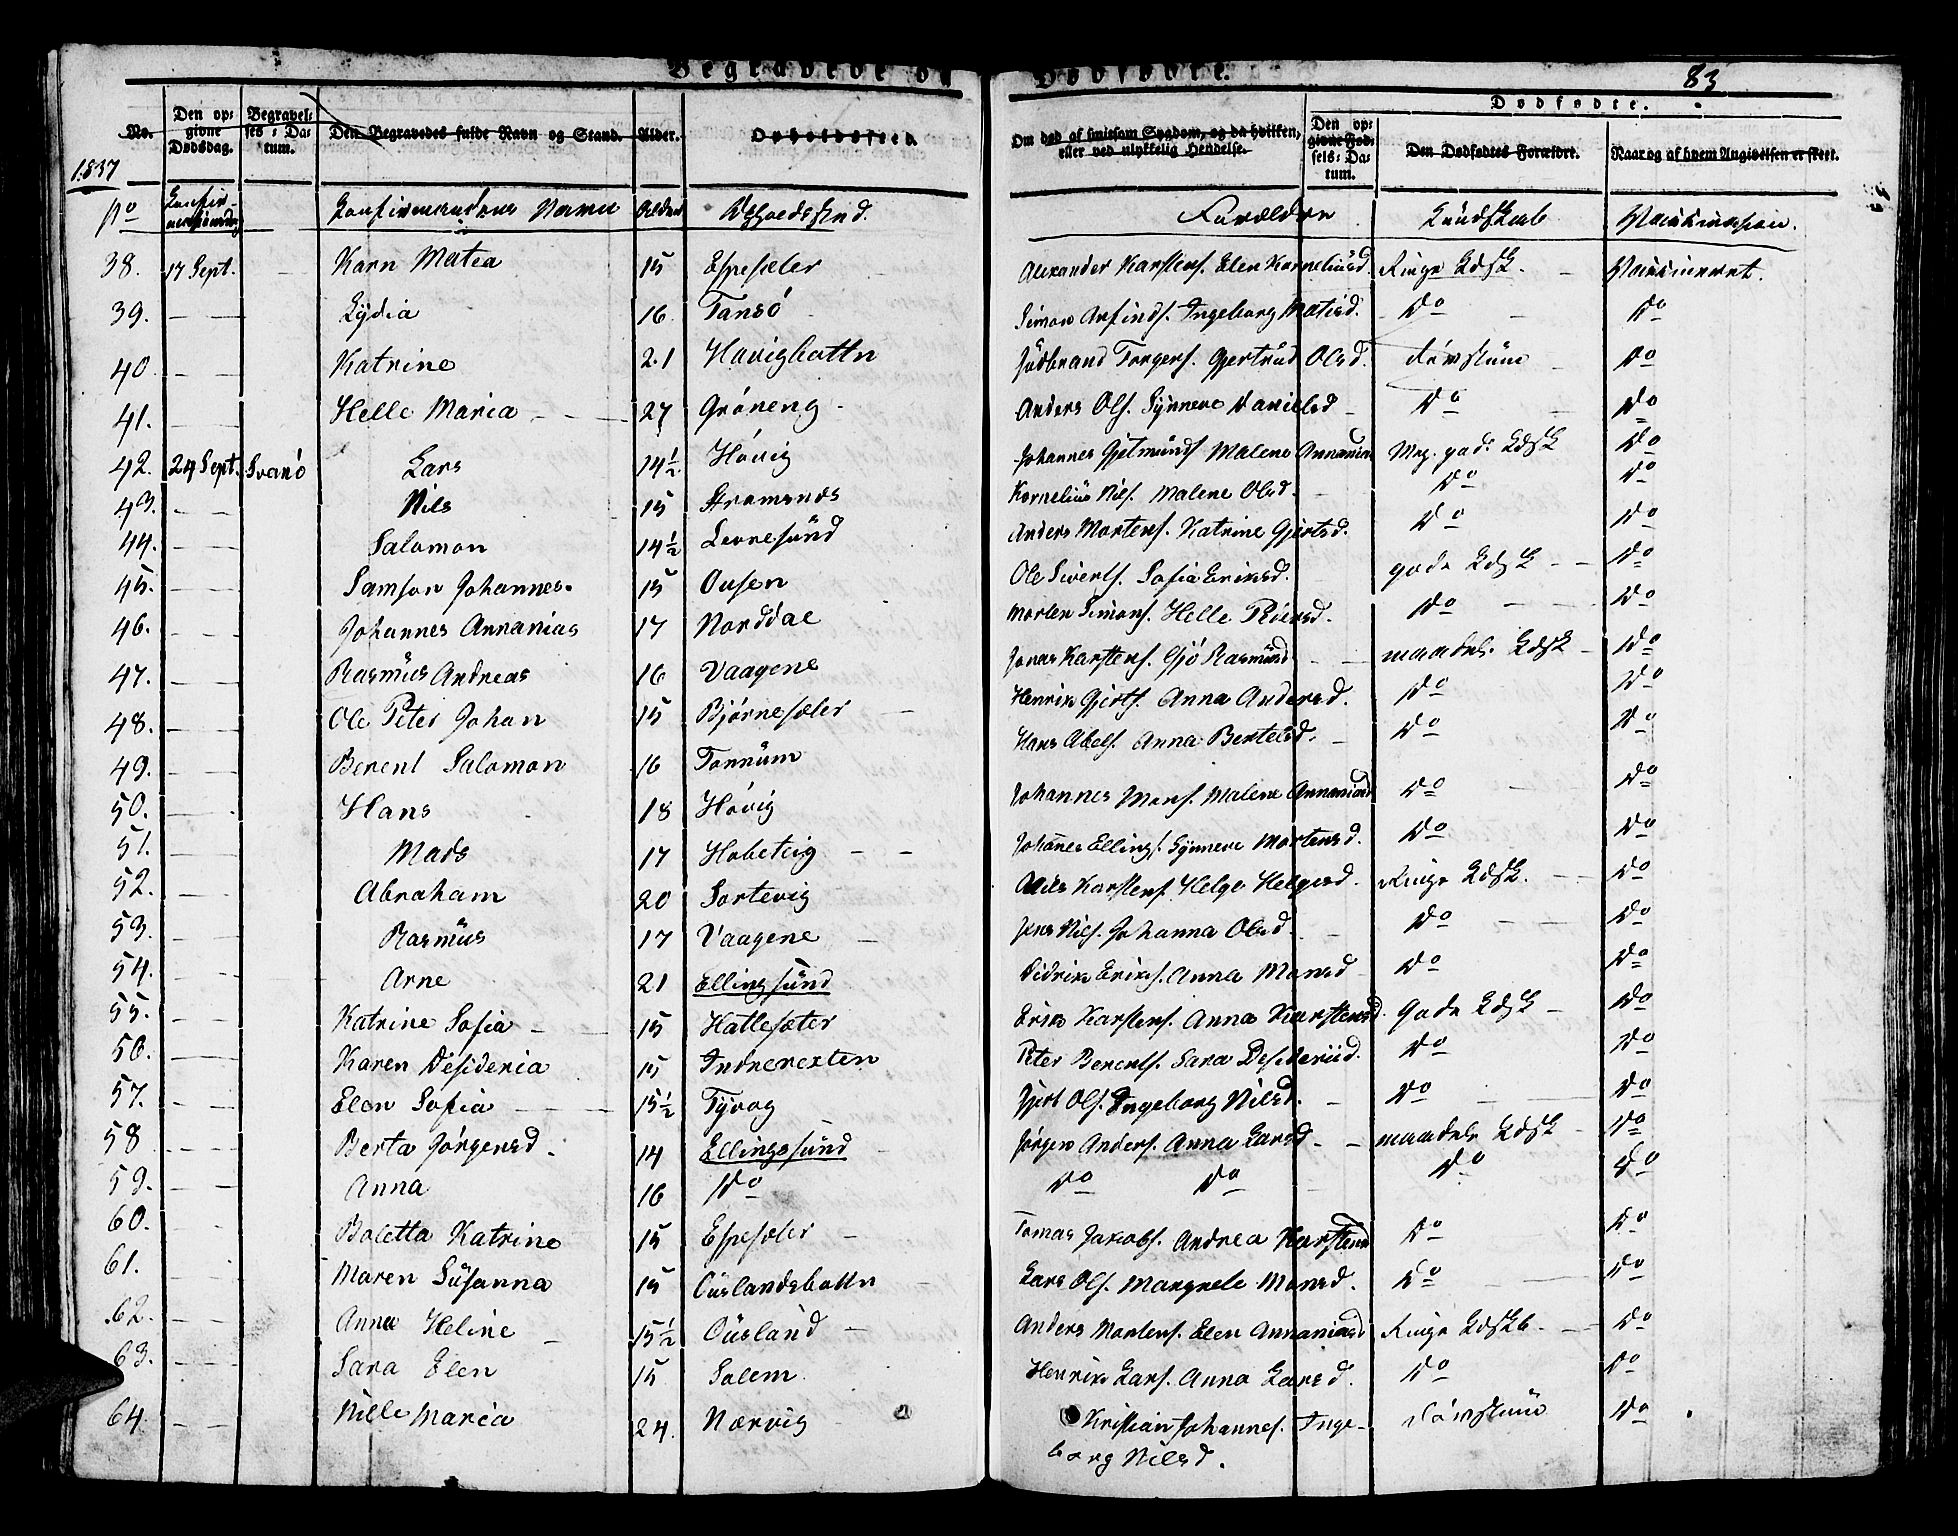 Begravede og Dødfødte. 83
No. Den opgivne Dødsdag. Begravelses-Datum. Den Begravedes fulde Navn og Stand. Alder. Opholdssted. Om død af smitsom Sygdom, og da hvilken, eller ved ulykkelig Hendelse. Dødfødte. Den opgivne Fødsels-Datum. Den Dødfødtes Forældre. Naar og af hvem Angivelsen er skeet.
1837
No Konfirmandens Navn Alder Forældre Kundskab Vaccination.
38. 17 Sept. Karn Matea 15 Espesæter Alexander Karstens. Elen Korneliusd. Ringe Kdsk. Vaccineret.
39. Lydia 16 Tansö Simon Arfinds. Ingeborg Matisd. Do Do
40. Katrine 21 Havigbottn Judbrand Torgers. Gjertrud Olsd. Døvstum Do
41. Helle Maria 27 Gröneng Anders Ols. Synneve Danielsd Do Do
42. 24 Sept. Svanö Lars 14½ Hövig Johannes Gjetmunds Malene Annania Meg. gode Kdsk Do
43. Nils 15 Stromsnes Kornelius Nils. Malene Olsd. Do Do
44. Salomon 14½ Levresund Anders Mortens. Katrine Gjertsd. Do Do
45. Samson Johannes. 15 Ousen Ole Siverts. Sofia Eriksd. gode Kdsk Do
46. Johannes Annanias 17 Norddal Morten Simons. Helle Peersd. Do Do
47. Rasmus Andreas 16 Vaagene Jonas Karstens. Gjö Rasmusd maadel. Kdsk Do
48. Ole Peter Johan 15 Björnesæter Henrik Gjerts. Anna Andersd. Do Do
49. Berent Salomon 16 Tonnum Hans Abels. Anna Bertelsd. Do Do
50. Hans 18 Hövig Johannes Mons. Malene Annaniasd Do Do
51. Mads 17 Hobeteig Johannes Ellings. Synneve Mortensd. Do Do
52. Abraham 20 Sortevig Nils Karstens. Helge Helgesd. Ringe Kdsk. Do
53. Rasmus 17 Vaagene Jens Nils. Johanna Olsd. Do Do
54. Arne 21 Ellingsund Didrik Eriks. Anna Monsd Do Do
55. Katrine Sofia 15 Hattesæter Erik Karstens. Anna Karstensd. Gode Kdsk Do
56. Karen Desideria 15 Indrerexten Peter Berents. Sara Desideriid. Do Do
57. Elen Sofia 15½ Tyvog Gjert Ols. Ingeborg Nilsd. Do Do
58 Berta Jörgensd. 14 Ellingssund Jörgen Anders. Anna Larsd maadel. Kdsk Do
59. Anna 16 Do Do Do Do Do
60. Boletta Katrine 15 Espesæter Tomas Jakobs. Andrea Karstensd Do Do
61. Maren Susanna 15 Ouslandsbottn Lars Ols. Margrete Monsd. Do Do
62. Anna Heline 15½ Ousland Anders Mortens. Elen Annaniasd Ringe Kdskb. Do
63. Sara Elen 15 Solem Henrik Lars. Anna Larsd. Do Do
64. Nille Maria 24. Nærvig Kristian Johannes. Inge- Døvstum Do
borg Nilsd.